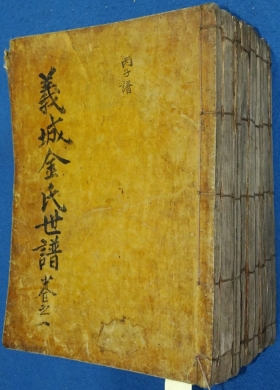 丙子譜
義城金氏世譜 卷之一